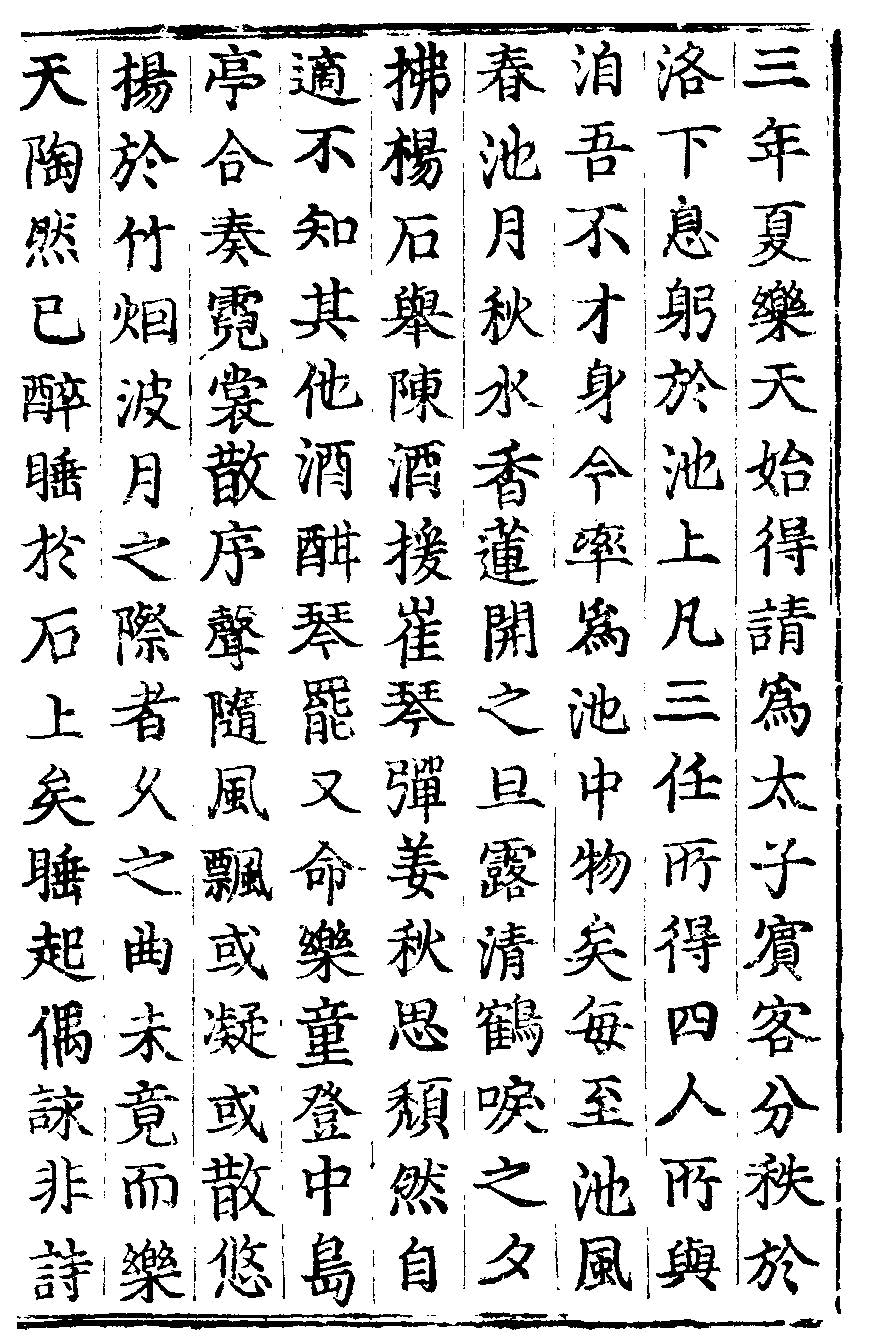 三年夏樂天始得請爲太子賓客分秩於
洛下息躬於池上凡三任所得四人所與
洎吾不才身今率爲池中物矣每至池風
春池月秋水香蓮開之旦露清鶴唳之夕
拂楊石舉陳酒援崔琴彈姜秋思頹然自
適不知其他酒酣琴罷又命樂童登中島
亭合奏霓裳散序聲隨風飄或凝或散悠
揚於竹烟波月之際者久之曲未竟而樂
天陶然已醉睡於石上矣睡起偶詠非詩